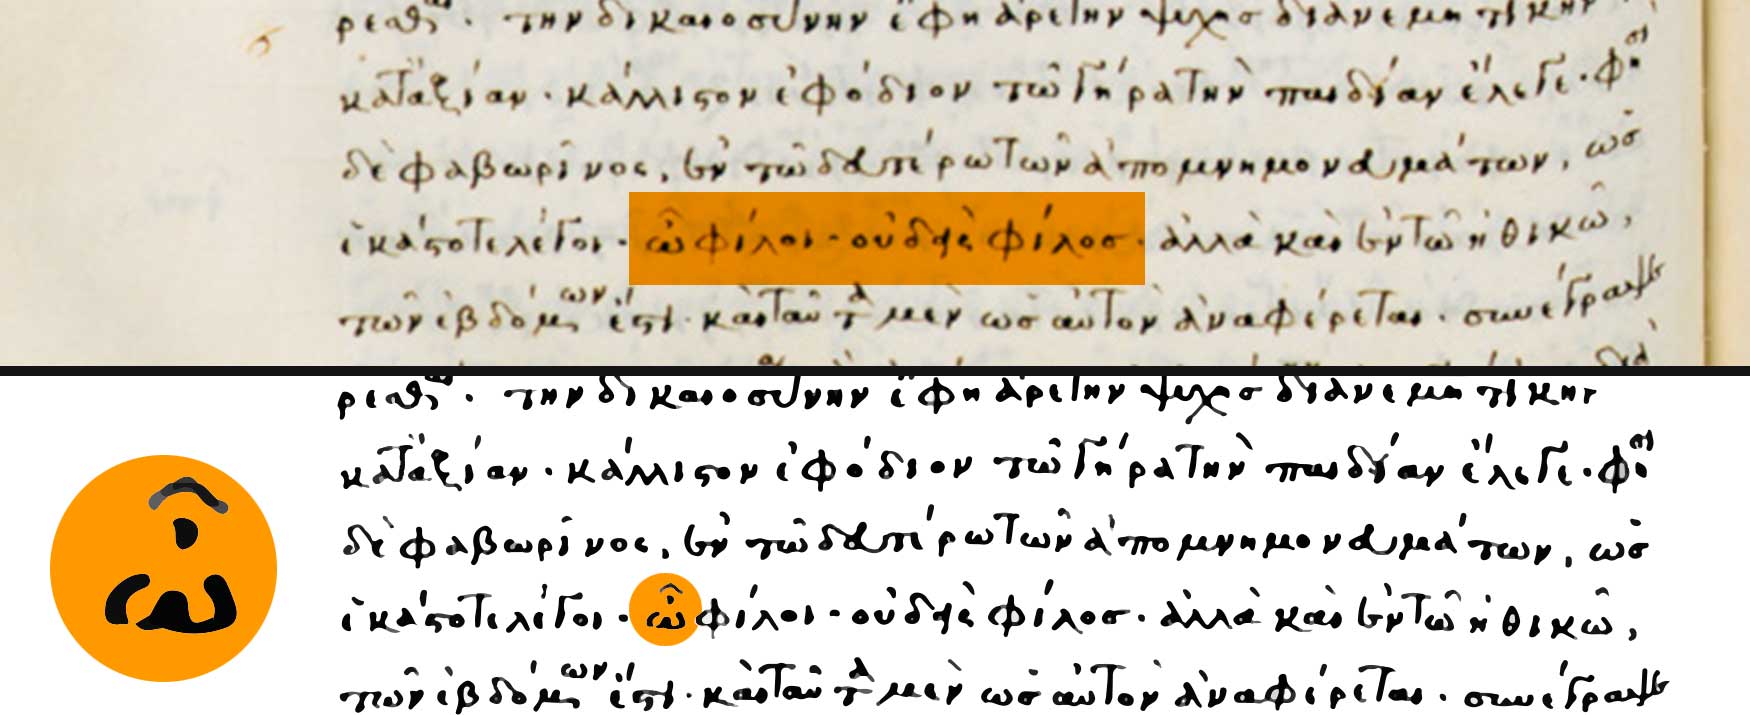 ρεσθαι. τὴν δικαιοσύνην ἔφη ἀρετὴν ψυχῆς διανεμητικὴν
κατ' ἀξίαν. κάλλιστον ἐφόδιον τῷ γήρᾳ τὴν παιδείαν ἔλεγε. φησὶ
δὲ φαβωρῖνος, ἐν τῷ δευτέρῳ τῶν ἀπομνημονευμάτων, ὡς
ἑκάστοτε λέγοι. ὦ φίλοι· οὐδεὶς φίλος. ἀλλὰ καὶ ἐν τῷ ἠθικῶ,
τῶν ἑβδόμῳ ἐστι. καὶ ταῦτα μὲν ὡς αὐτὸν ἀναφέρεται. συνέγραψε
ρεσθαι. τὴν δικαιοσύνην ἔφη ἀρετὴν ψυχῆς διανεμητικὴν
κατ' ἀξίαν. κάλλιστον ἐφόδιον τῷ γήρᾳ τὴν παιδείαν ἔλεγε. φησὶ
δὲ φαβωρῖνος, ἐν τῷ δευτέρῳ τῶν ἀπομνημονευμάτων, ὡς
ὦ
ἑκάστοτε λέγοι. ὦ φίλοι· οὐδεὶς φίλος. ἀλλὰ καὶ ἐν τῷ ἠθικῶ,
τῶν ἑβδόμῳ ἐστι. καὶ ταῦτα μὲν ὡς αὐτὸν ἀναφέρεται. συνέγραψε